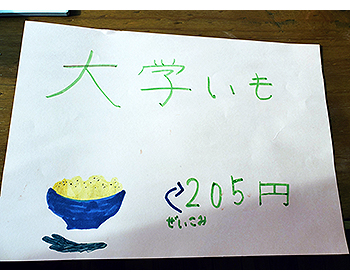 大学いも
205円
ぜいこみ